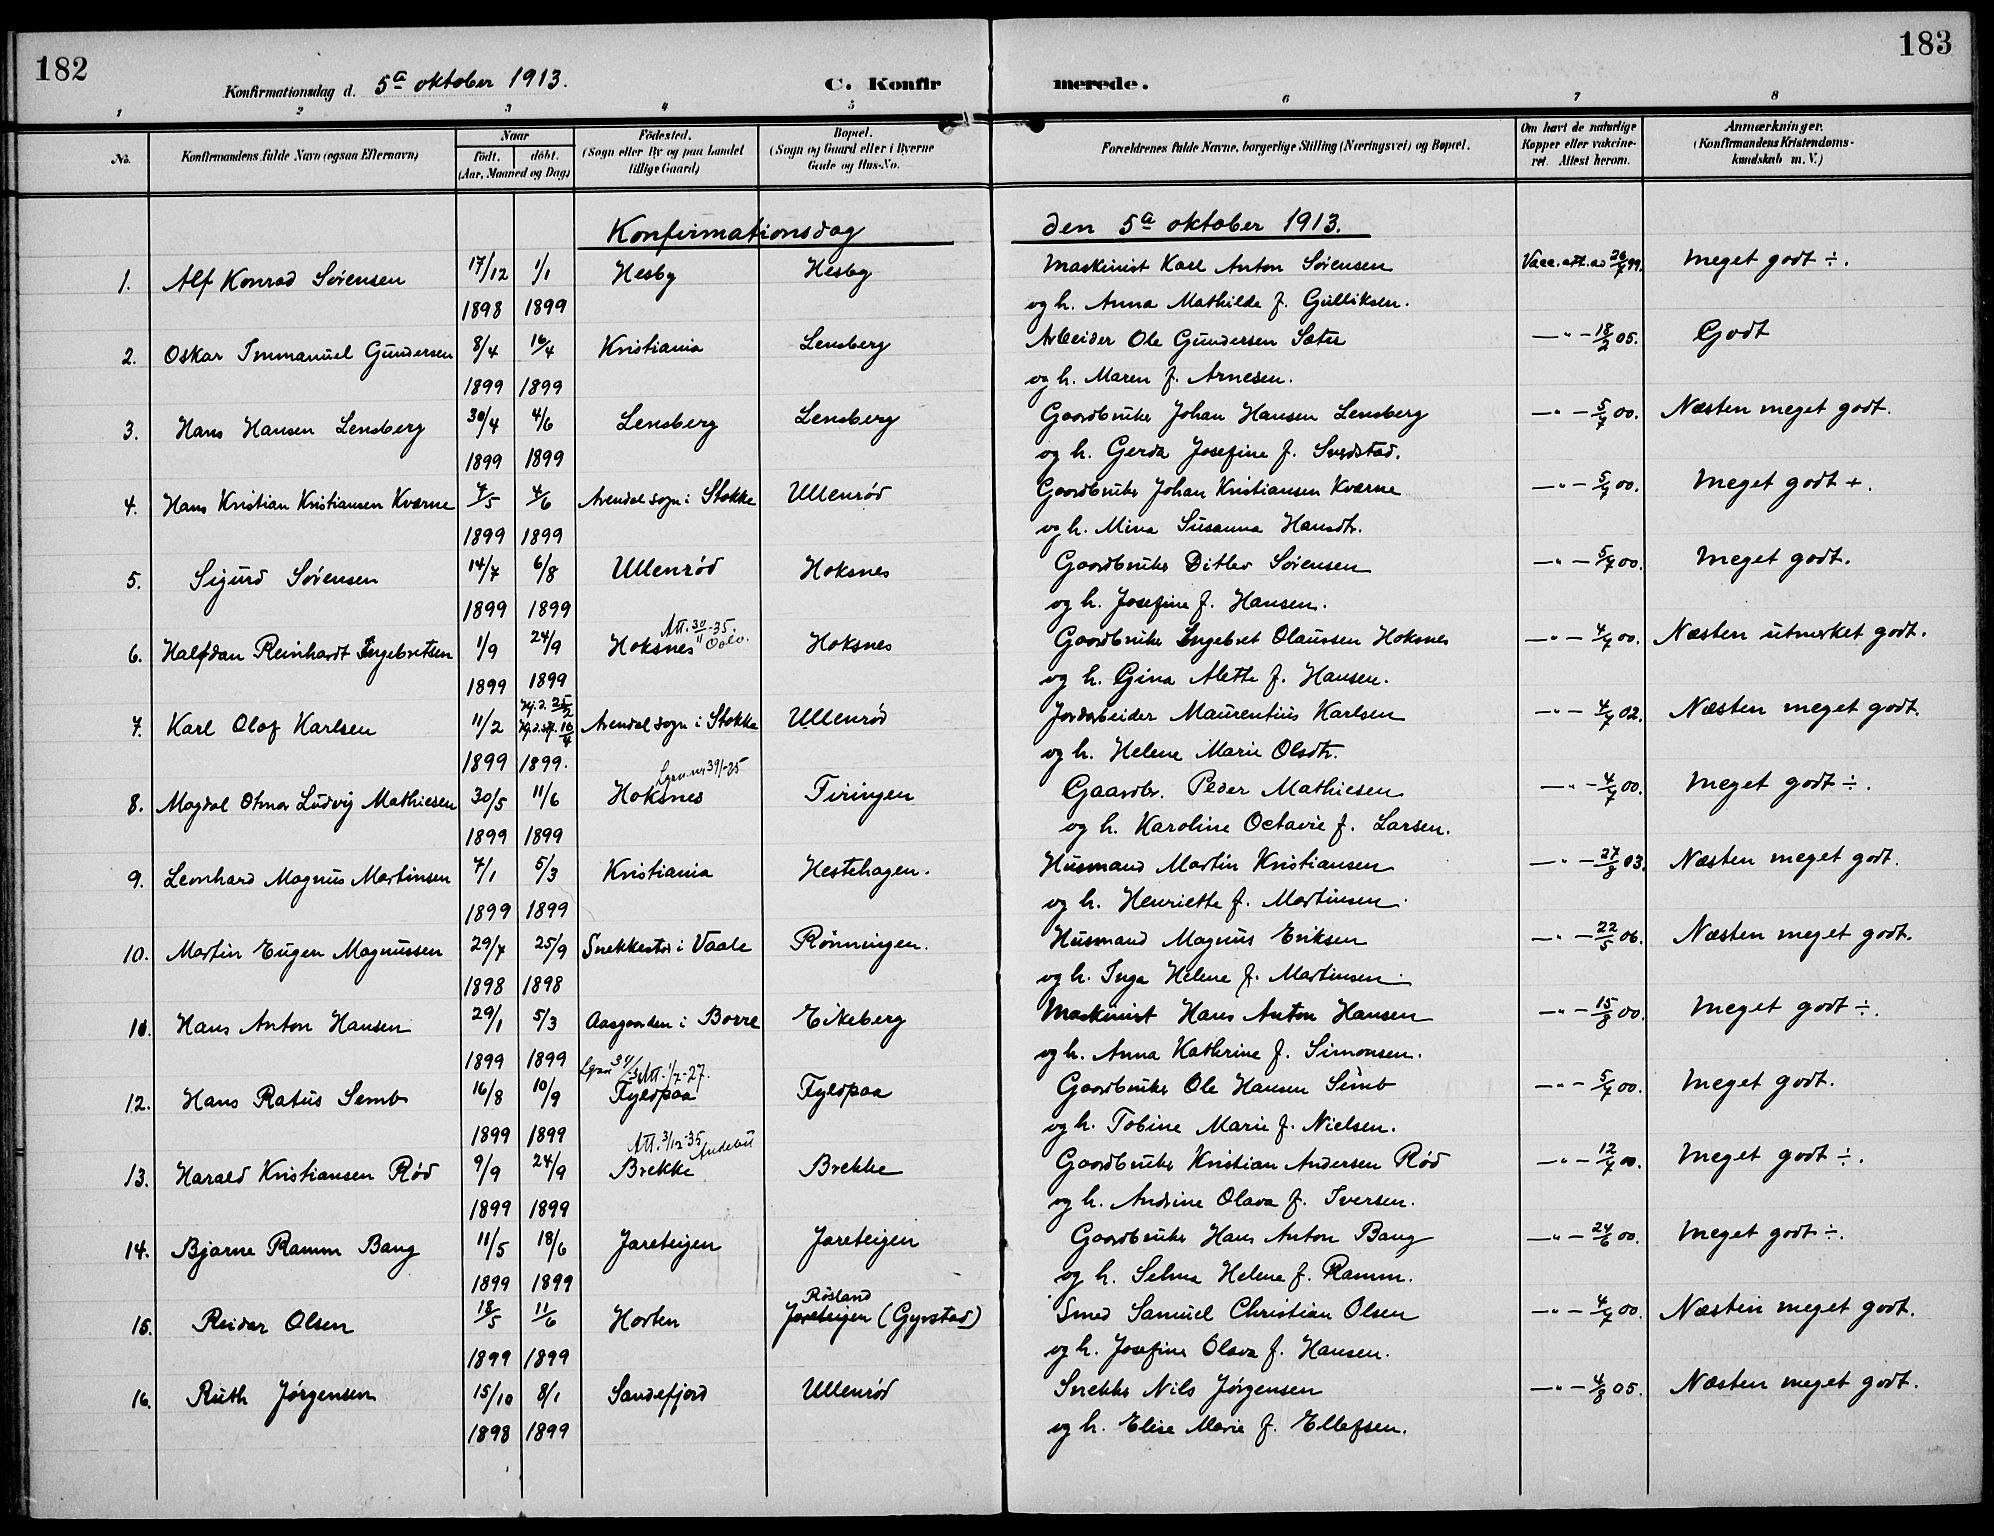 182
183
Konfirmationsdag d. 5a oktober 1913.
C. Konfirmerede.
1 2 3 4 5 6 7 8
No.
Konfirmandens fulde Navn (ogsaa Efternavn)
Naar
födt. döbt.
(Aar, Maaned og Dag)
Födested.
(Sogn eller By og paa Landet
tillige Gaard)
Bopæl.
(Sogn og Gaard eller i Byerne
Gade og Hus-No.
Forældrenes fulde Navne, borgerlige Stilling (Næringsvei) og Bopæl.
Om havt de naturlige
Kopper eller vakcine-
ret. Attest herom.
Anmærkninger.
(Konfirmandens Kristendoms-
kundskab m. V.)
Konfirmationsdag den 5a oktober 1913.
1. Alf Konrad Sørensen 17/12 1/1 Hesby Hesby Maskinist Karl Anton Sørensen Vacc.att.av 26/7 99. Meget godt ÷.
1898 1899 og h. Anna Mathilde f. Gulliksen.
2. Oskar Immanuel Gundersen 8/4 16/4 Kristiania Lensberg Arbeider Ole Gundersen Sæter —"— 18/2 05. Godt
1899 1899 og h. Maren f. Arnesen.
3. Hans Hansen Lensberg 30/4 4/6 Lensberg Lensberg Gaardbruker Johan Hansen Lensberg —"— 5/7 00. Næsten meget godt.
1899 1899 og h. Gerda Josefine f. Sverdstad.
4. Hans Kristian Kristiansen Kværne 7/5 4/6 Arendal sogn i Stokke Ullenrød Gaardbruker Johan Kristiansen Kværne —"— 5/7 00. Meget godt +.
1899 1899 og h. Mina Susanna Hansdtr.
5. Sigurd Sørensen 14/7 6/8 Ullenrød Hoksnes Gaardbruker Ditlev Sørensen —"— 5/7 00. Meget godt.
1899 1899 og h. Josefine f. Hansen.
Att. 30/11-35.
6. Halfdan Reinhardt Ingebretsen 1/9 24/9 Hoksnes Hoksnes Gaardbruker Ingebret Olaussen Hoksnes —"— 4/7 00. Næsten utmerket godt.
1899 1899 og h. Gina Alette f. Hansen.
Hj.d. 25/2
7. Karl Olaf Karlsen 11/2 16/4 Arendal sogn i Stokke Ullenrød Jordarbeider Maurentius Karlsen —"— 4/7 02. Næsten meget godt.
1899 1899. og h. Helene Marie Olsdtr.
8. Magdal Otmar Ludvig Mathiesen 30/5 11/6 Hoksnes Firingen Gaardbr. Peder Mathiesen —"— 4/7 00. Meget godt ÷.
1899 1899 og h. Karoline Octavie f. Larsen.
9. Leonhard Magnus Martinsen 7/1 5/3 Kristiania Hestehagen. Husmand Martin Kristiansen —"— 27/8 03. Næsten meget godt.
1899 1899 og h. Henriette f. Martinsen.
10. Martin Eugen Magnussen 29/7 25/9 Snekkestø i Vaale Rönningen. Husmand Magnus Eriksen —"— 22/5 06. Næsten meget godt.
1898 1898 og h. Inga Helene f. Martinsen.
11. Hans Anton Hansen 29/1 5/3 Aasgaarden i Borre Eikeberg Maskinist Hans Anton Hansen —"— 15/8 00. Meget godt ÷.
1899 1899 og h. Anna Kathrine f. Simonsen.
Att. 1/7-27.
12. Hans Ratus Semb 16/8 10/9 Fyldpaa Fyldpaa Gaardbruker Ole Hansen Semb —"— 5/7 00. Meget godt.
1899 1899 og h. Tobine Marie f. Nielsen.
Att. 3/12-35 Andebu
13. Harald Kristiansen Rød 9/9 24/9 Brekke Brekke Gaardbruker Kristian Andersen Rød —"— 12/7 00. Meget godt ÷.
1899 1899 og h. Andrine Olava f. Iversen.
14. Bjarne Ramm Bang 11/5 18/6 Jareteigen Jareteigen Gaardbruker Hans Anton Bang —"— 24/6 00. Meget godt ÷.
1899 1899 og h. Selma Helene f. Ramm.
Røsland
15. Reidar Olsen 13/5 11/6 Horten Jareteigen (Gyrstad) Smed Samuel Christian Olsen —"— 4/7 00. Næsten meget godt.
1899 1899 og h. Josefine Olava f. Hansen.
16. Ruth Jørgensen 15/10 8/1 Sandefjord Ullenrød Snekker Nils Jørgensen —"— 4/8 05. Næsten meget godt.
1898 1899 og h. Elise Marie f. Ellefsen.